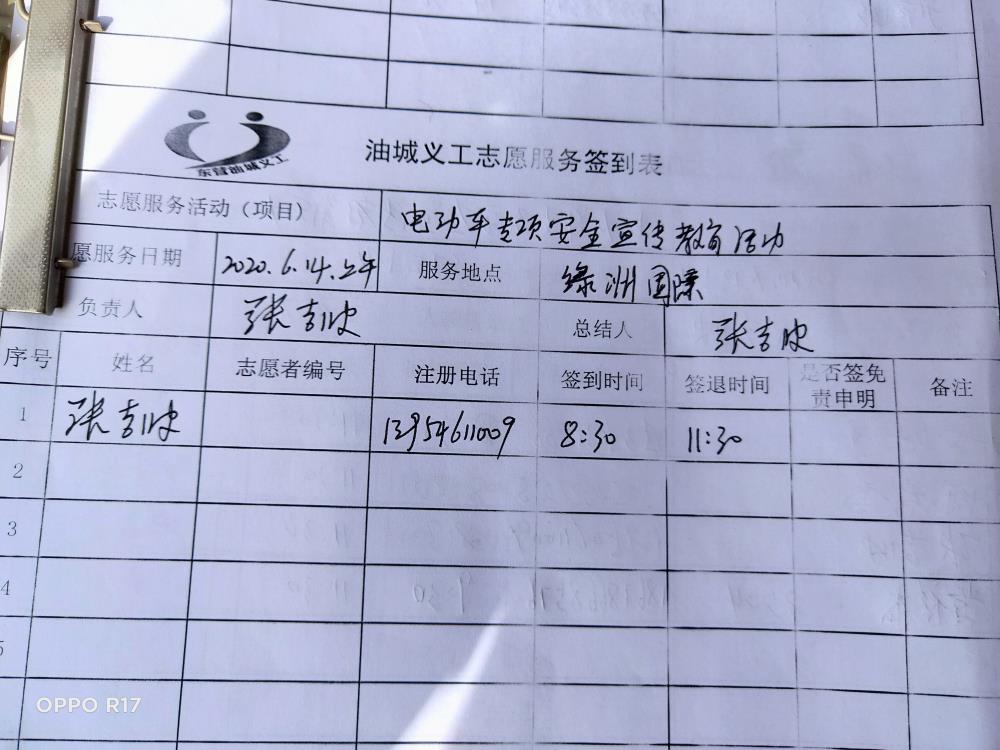 东营油城义工
油城义工志愿服务签到表
志愿服务活动（项目） 电动车专项安全宣传教育活动
愿服务日期 2020.6.14.上午 服务地点 绿洲国际
负责人 张吉忠 总结人 张吉忠
序号 姓名 志愿者编号 注册电话 签到时间 签退时间 是否签免责申明 备注
1 张吉忠 13954611009 8:30 11:30
2
3
4
5
OPPO R17